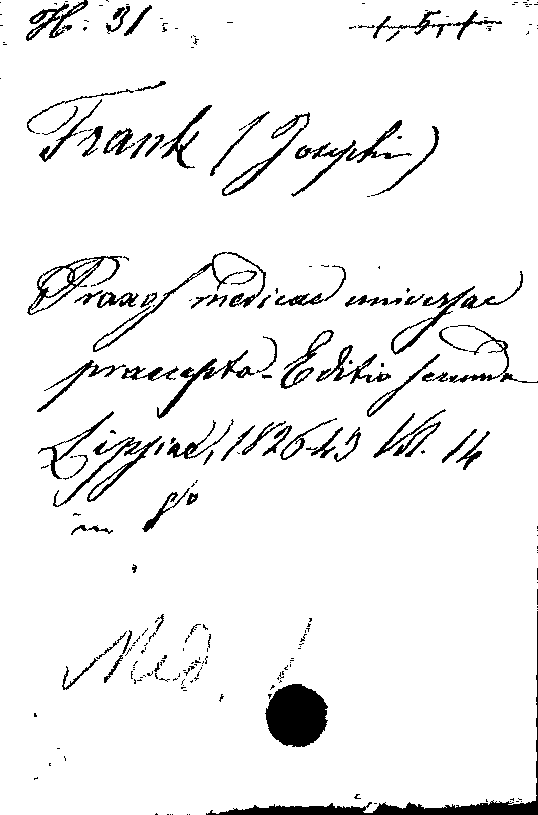 H. 31 1, 5, 1
Frank (Josephi)
Praxs medicae universae
praecepta - Editio secunda
Lipsiae, 1826-43 Vol. 14
in 8o
Med. 1